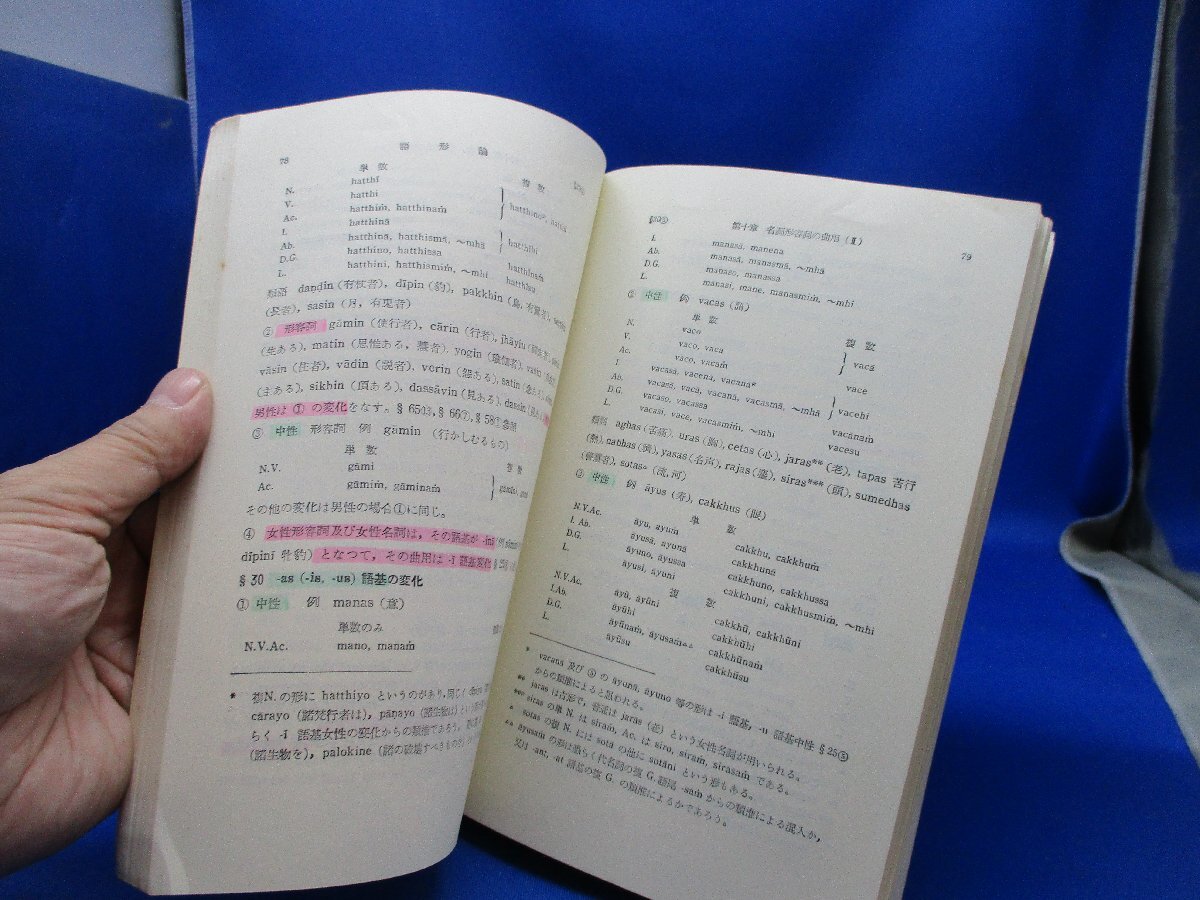 78 語形論
単数 複数
N. hatthī
V. hatthi hatthino*, hatthī
Ac. hatthiṁ, hatthinaṁ
I. hatthinā
Ab. hatthinā, hatthismā, ～mhā hatthīhi
D.G. hatthino, hatthissa hatthīnaṁ
L. hatthini, hatthismiṁ, ～mhi hatthīsu
類語 daṇḍin (有杖者), dīpin (豹), pakkhin (鳥, 有翼者),
(長者), sasin (月, 有兎者)
② 形容詞 gāmin (使行者), cārin (行者), jhāyin
(生ある), matin (思惟ある, 慧者), yogin (瑜伽者),
vāsin (住者), vādin (説者), verin (怨ある), satin
(まある), sikhin (頂ある), dassāvin (見ある), dassin
男性は ① の変化をなす。§ 65⑬, § 66⑦, § 58① 参照
③ 中性 形容詞 例 gāmin (行かしむるもの)
単数 複数
N.V. gāmi
Ac. gāmiṁ, gāminaṁ
その他の変化は男性の場合①に同じ。
④ 女性形容詞及び女性名詞は, その語基が -inī
dīpinī 牝豹) となつて, その曲用は -ī 語基変化
§ 30 -as (-is, -us) 語基の変化
① 中性 例 manas (意)
単数のみ
N.V.Ac. mano, manaṁ
* 複N. の形に hatthiyo というのがあり, 同じく
cārayo (諸梵行者は), pāṇayo (諸生物は)
らく -i 語基女性の変化からの類推であろう。
(諸生物を), palokine (諸の破壊すべきものを)
§30① 第十章 名詞形容詞の曲用 (Ⅱ) 79
I. manasā, manena
Ab. manasā, manasmā, ～mhā
D.G. manaso, manassa
L. manasi, mane, manasmiṁ, ～mhi
② 中性 例 vacas (語)
単数 複数
N. vaco
V. vaco, vaca vacā
Ac. vaco, vacaṁ vace
I. vacasā, vacena, vacanā*
Ab. vacasā, vacā, vacanā, vacasmā, ～mhā vacehi
D.G. vacaso, vacassa vacānaṁ
L. vacasi, vace, vacasmiṁ, ～mhi vacesu
類語 aghas (苦痛), uras (胸), cetas (心), jaras** (老), tapas 苦行
(熱), nabhas (興), yasas (名声), rajas (塵), siras*** (頭), sumedhas
sotas▵ (流, 河)
③ 中性 例 āyus (寿), cakkhus (眼)
単数
N.V.Ac. āyu, āyuṁ cakkhu, cakkhuṁ
I. Ab. āyusā, āyunā cakkhunā
D.G. āyuno, āyussa cakkhuno, cakkhussa
L. āyusi, āyuni cakkhuni, cakkhusmiṁ, ～mhi
複数
N.V.Ac. āyū, āyūni cakkhū, cakkhūni
I.Ab. āyūhi cakkhūhi
D.G. āyūnaṁ, āyusaṁ▵▵ cakkhūnaṁ
L. āyūsu cakkhūsu
* vacanā 及び ③ の āyunā, āyuno 等の形は -i 語基, -u 語基中性 § 25③
からの類推によると思われる。
** jaras は古形で, 普通は jarās (老) という女性名詞が用いられる。
*** siras の単 N. は siraṁ, Ac. は siro, siraṁ, sirasaṁ である。
▵ sotas の複 N. には sotā の他に sotāni という形もある。
▵▵ āyusaṁ の形は恐らく代名詞の複 G. 語尾 -saṁ からの類推による混入か,
又は -ant, -at 語基の複 G. の類推によるかであろう。